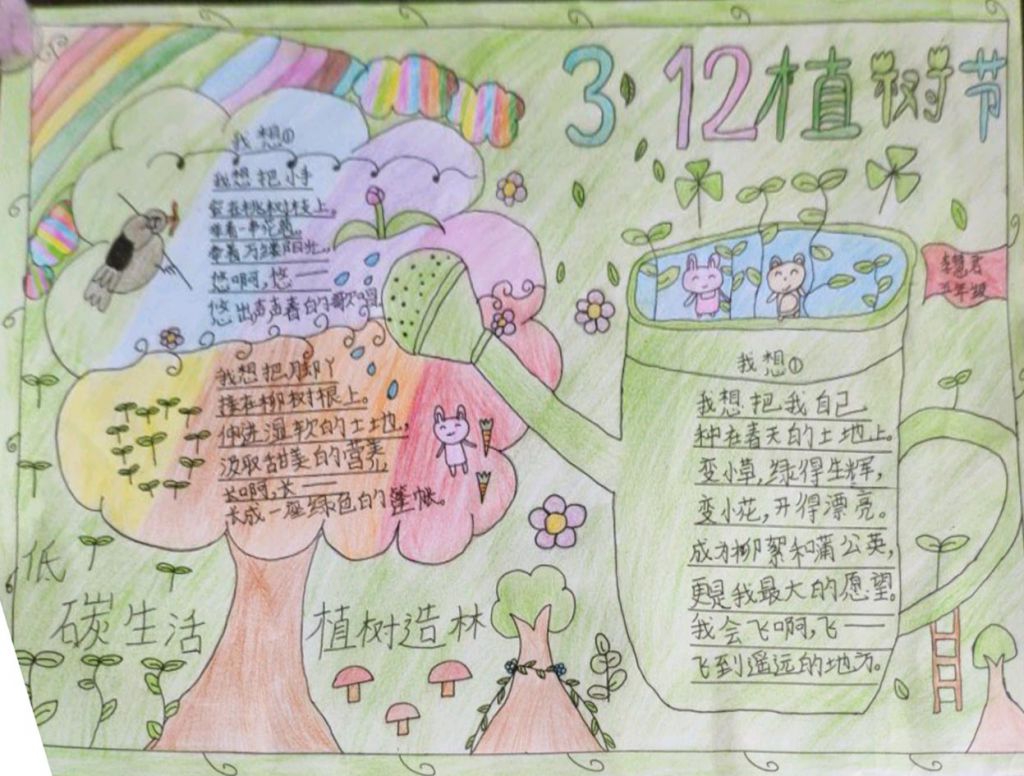 3.12植树节
我想①
我想把小手
安在桃树枝上。
带着一串花苞，
牵着万缕阳光，
悠啊，悠——
悠出声声春的歌唱
我想把脚丫
接在柳树根上。
伸进湿软的土地，
汲取甜美的营养
长啊，长——
长成一座绿色的篷帐。
李慧君
五年级
我想①
我想把我自己
种在春天的土地上。
变小草，绿得生辉，
变小花，开得漂亮。
成为柳絮和蒲公英，
更是我最大的愿望。
我会飞啊，飞——
飞到遥远的地方。
低
碳生活
植树造林